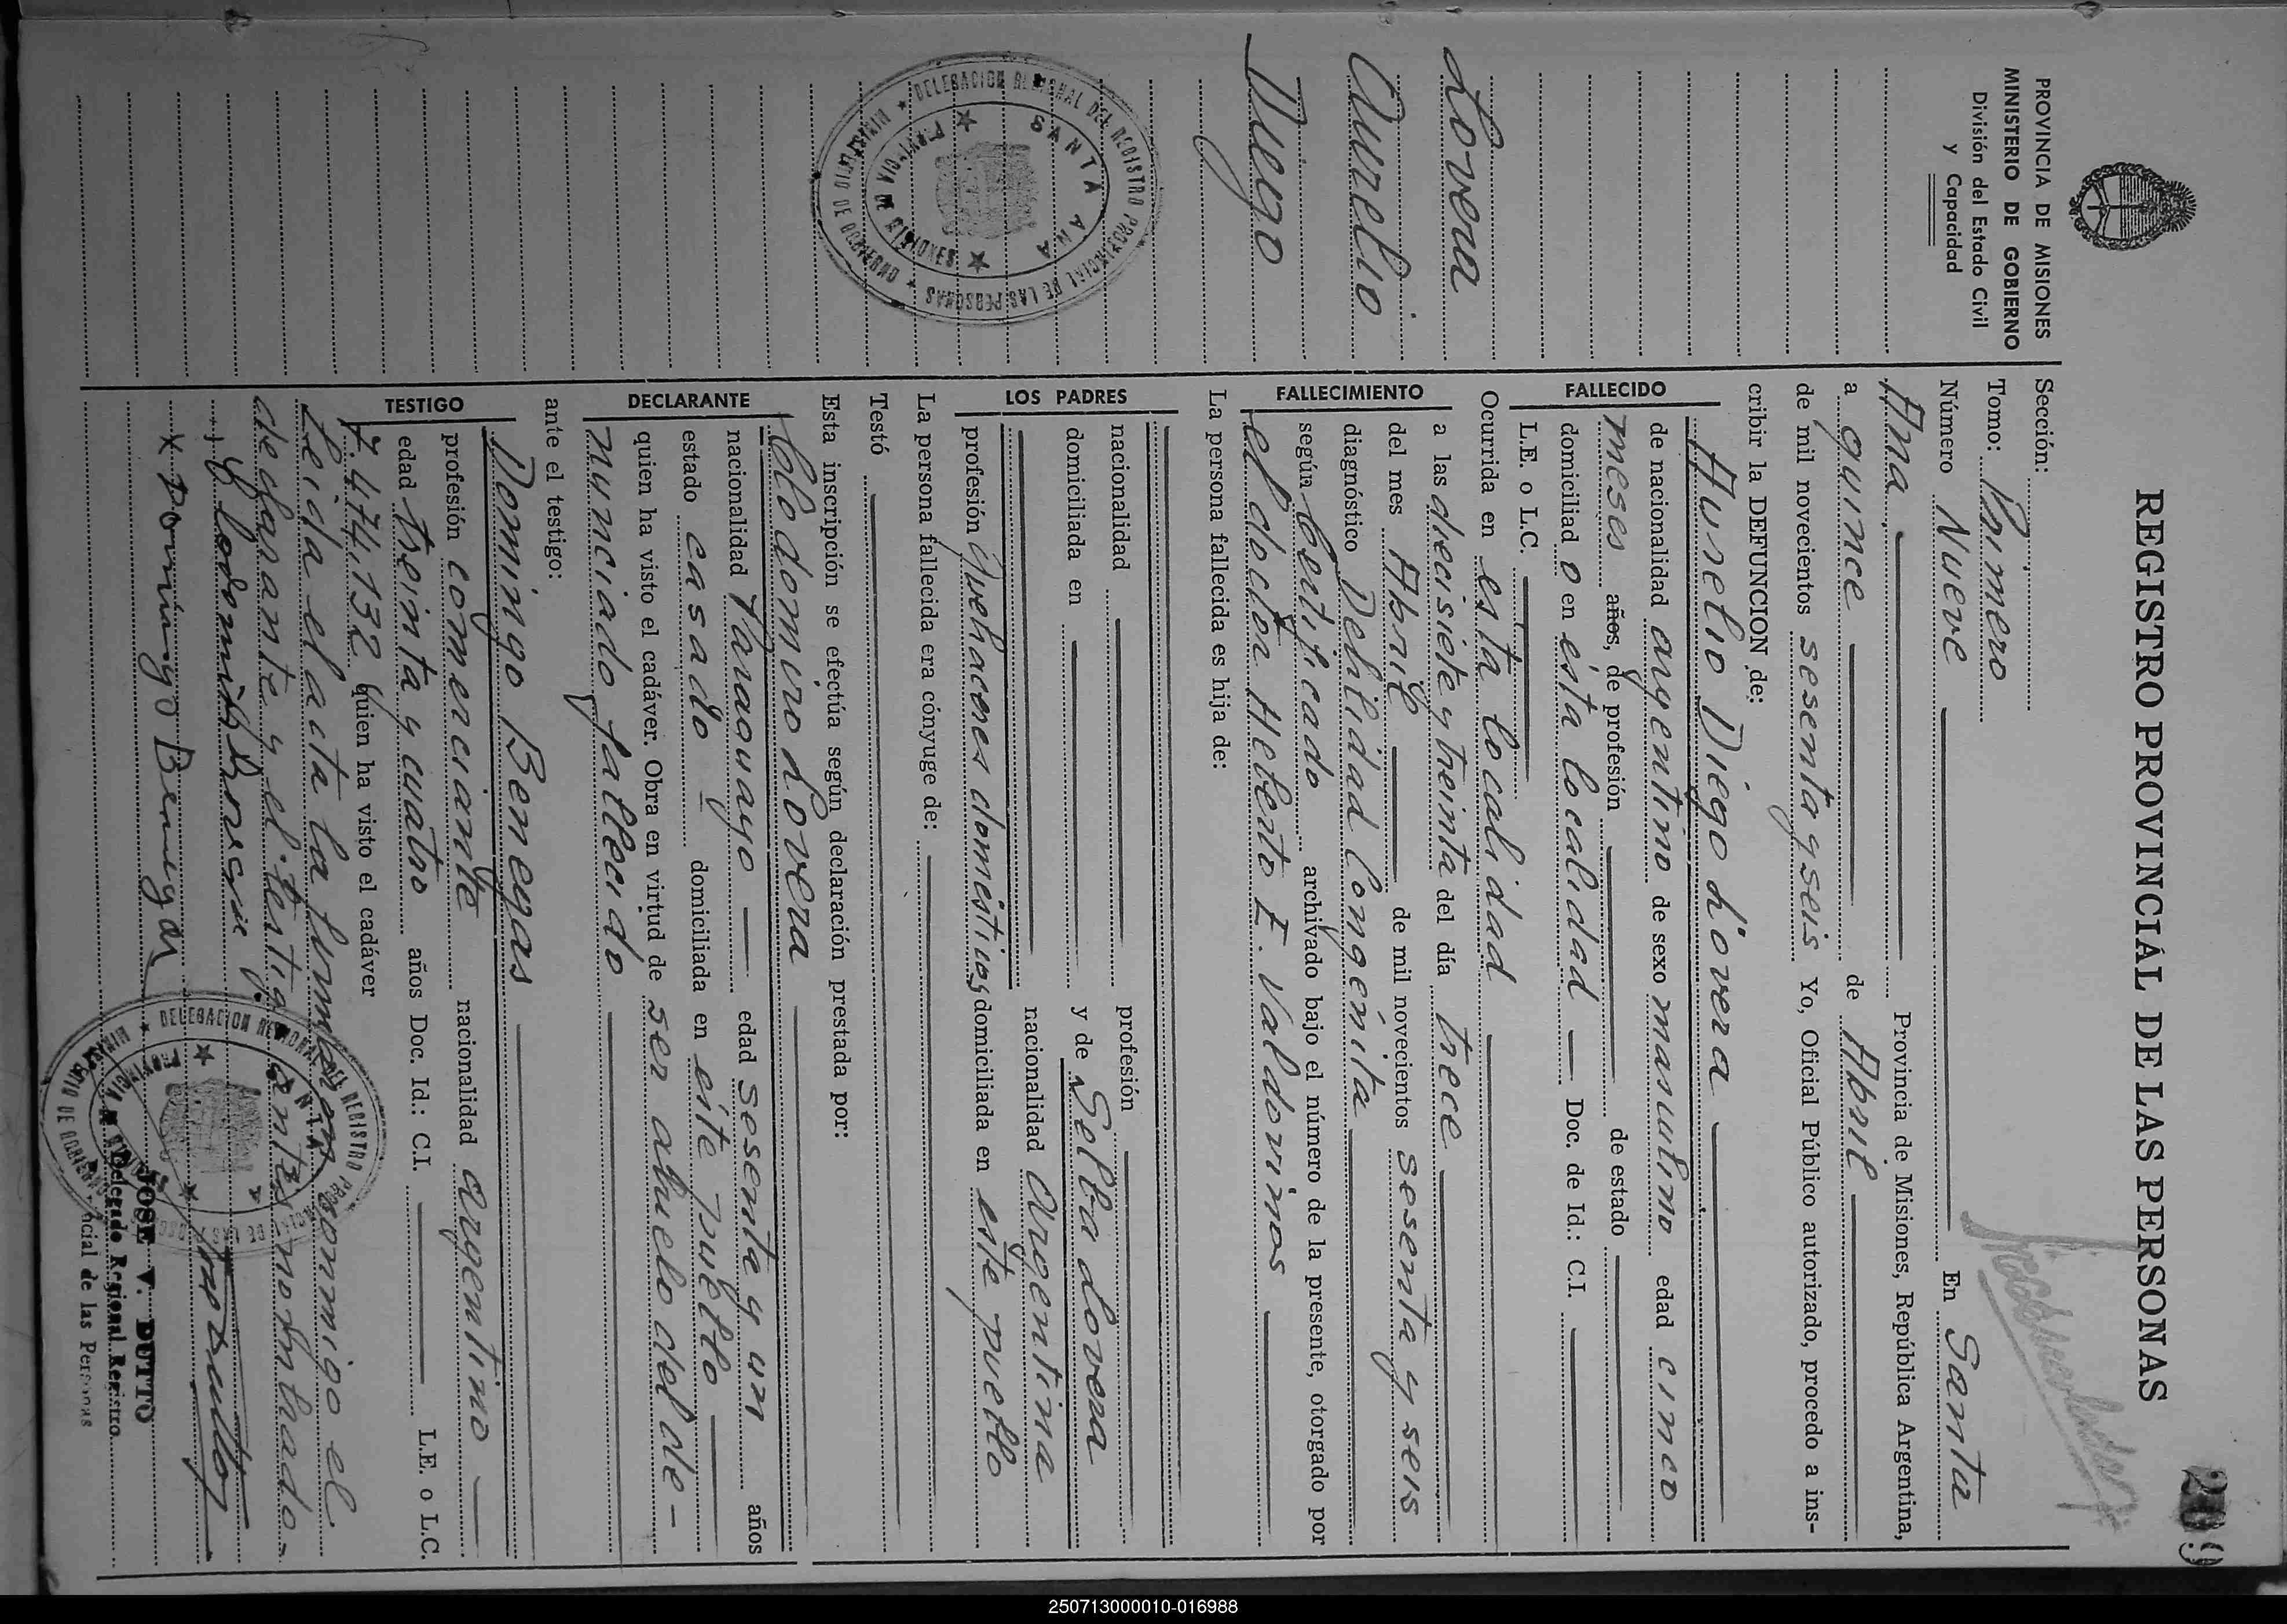 209
REGISTRO PROVINCIAL DE LAS PERSONAS
PROVINCIA DE MISIONES
MINISTERIO DE GOBIERNO
División del Estado Civil
y Capacidad
Lovera
Aurelio
Diego
DELEGACION REGIONAL DEL REGISTRO PROVINCIAL DE LAS PERSONAS
MINISTERIO DE GOBIERNO
SANTA ANA
PROVINCIA DE MISIONES
Sección:
Tomo: Primero
Número Nueve En Santa
Ana Provincia de Misiones, República Argentina,
a quince de Abril
de mil novecientos sesenta y seis Yo, Oficial Público autorizado, procedo a ins-
cribir la DEFUNCION de:
FALLECIDO
Aurelio Diego Lovera
de nacionalidad argentino de sexo masculino edad cinco
meses años, de profesión de estado
domiciliado en ésta localidad Doc. de Id.: C.I.
L.E. o L.C.
Ocurrida en esta localidad
FALLECIMIENTO
a las diecisiete y treinta del día trece
del mes Abril de mil novecientos sesenta y seis
diagnóstico Debilidad Congénita
según Certificado archivado bajo el número de la presente, otorgado por
el doctor Heberto E. Valdovinos
La persona fallecida es hija de:
LOS PADRES
nacionalidad profesión
domiciliada en y de Selba Lovera
nacionalidad Argentina
profesión Quehaceres domésticos domiciliada en este pueblo
La persona fallecida era cónyuge de:
Testó
Esta inscripción se efectúa según declaración prestada por:
DECLARANTE
Clodomiro Lovera
nacionalidad Paraguayo edad sesenta y un años
estado casado domiciliada en éste pueblo
quien ha visto el cadáver. Obra en virtud de ser abuelo del de-
nunciado fallecido
ante el testigo:
TESTIGO
Domingo Benegas
profesión comerciante nacionalidad argentino
edad treinta y cuatro años Doc. Id.: C.I. L.E. o L.C.
7.474.132 quien ha visto el cadáver
Leida el acta la firmaron conmigo el
declarante y el testigo antes nombrado-
x Domingo Benegas
DELEGACION REGIONAL DEL REGISTRO
SANTA
JOSE V. DUTTO
Delegado Regional Registro
ncial de las Personas
250713000010-016988